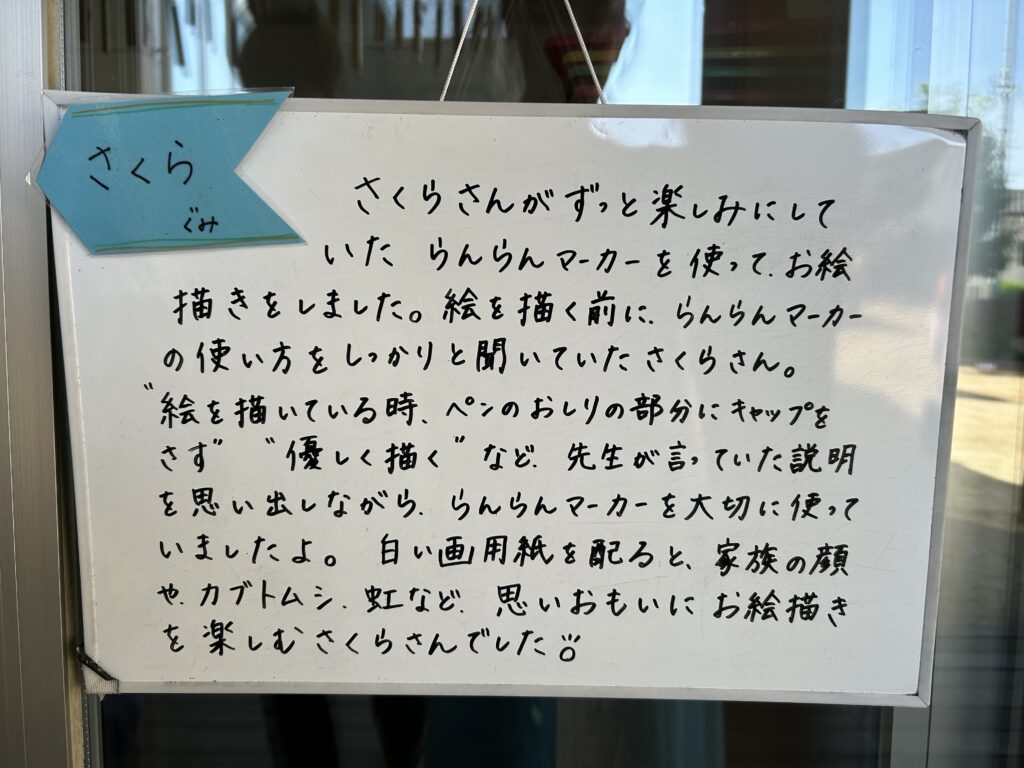 さくら
ぐみ
さくらさんがずっと楽しみにして
いた らんらんマーカーを使って、お絵
描きをしました。絵を描く前に、らんらんマーカー
の使い方をしっかりと聞いていたさくらさん。
〝絵を描いている時、ペンのおしりの部分にキャップを
さす〞 〝優しく描く〞など、先生が言っていた説明
を思い出しながら、らんらんマーカーを大切に使って
いましたよ。 白い画用紙を配ると、家族の顔
や、カブトムシ、虹など、思いおもいにお絵描き
を楽しむさくらさんでした